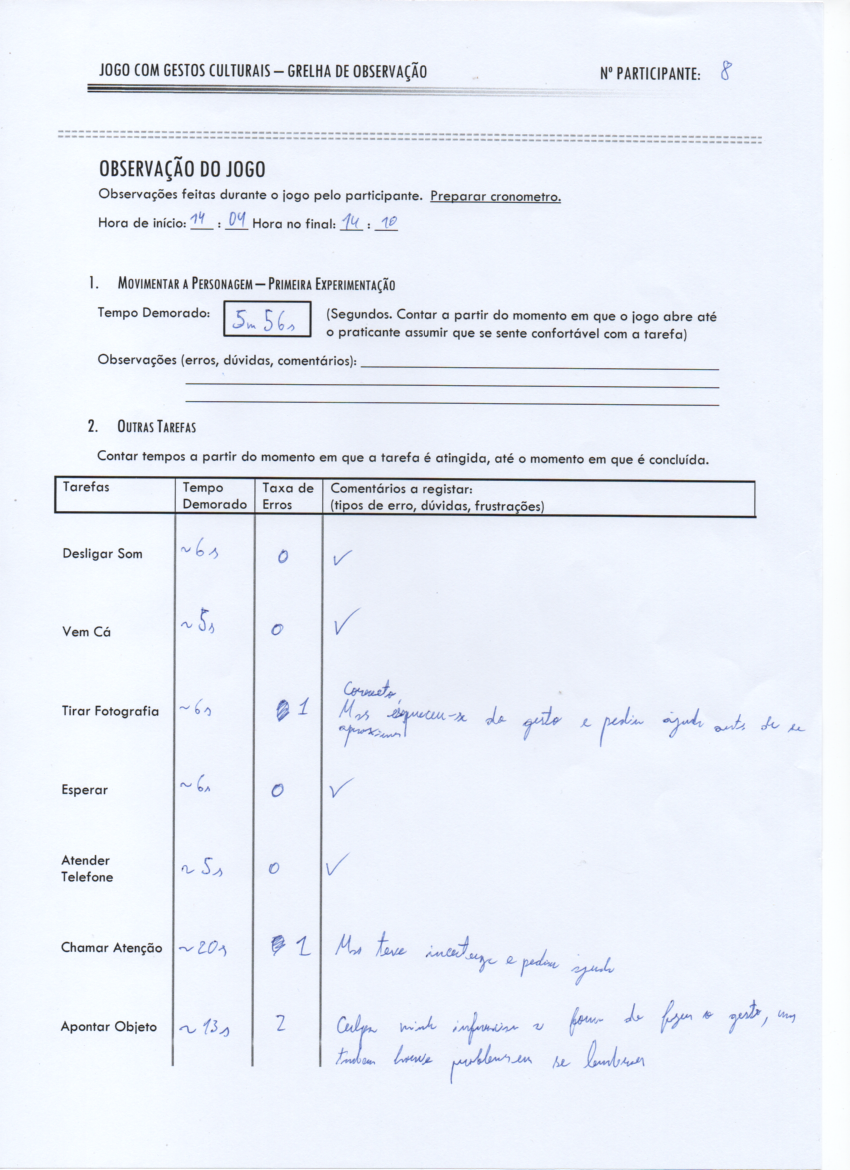 JOGO COM GESTOS CULTURAIS – GRELHA DE OBSERVAÇÃO Nº PARTICIPANTE: 8
OBSERVAÇÃO DO JOGO
Observações feitas durante o jogo pelo participante. Preparar cronometro.
Hora de início: 14 : 04 Hora no final: 14 : 10
1. MOVIMENTAR A PERSONAGEM – PRIMEIRA EXPERIMENTAÇÃO
Tempo Demorado: 5m 56s (Segundos. Contar a partir do momento em que o jogo abre até
o praticante assumir que se sente confortável com a tarefa)
Observações (erros, dúvidas, comentários):
2. OUTRAS TAREFAS
Contar tempos a partir do momento em que a tarefa é atingida, até o momento em que é concluída.
Tarefas Tempo Taxa de Comentários a registar:
Demorado Erros (tipos de erro, dúvidas, frustrações)
Desligar Som ~6s 0 ✓
Vem Cá ~5s 0 ✓
Correto,
Tirar Fotografia ~6s 1 Mas esqueceu-se do gesto e pediu ajuda antes de se
aproximar
Esperar ~6s 0 ✓
Atender
Telefone ~5s 0 ✓
Chamar Atenção ~20s 1 Mas teve incerteza e pediu ajuda
Apontar Objeto ~13s 2 Culpa minha a forma de fazer o gesto, mas
também houve problemas em se lembrar